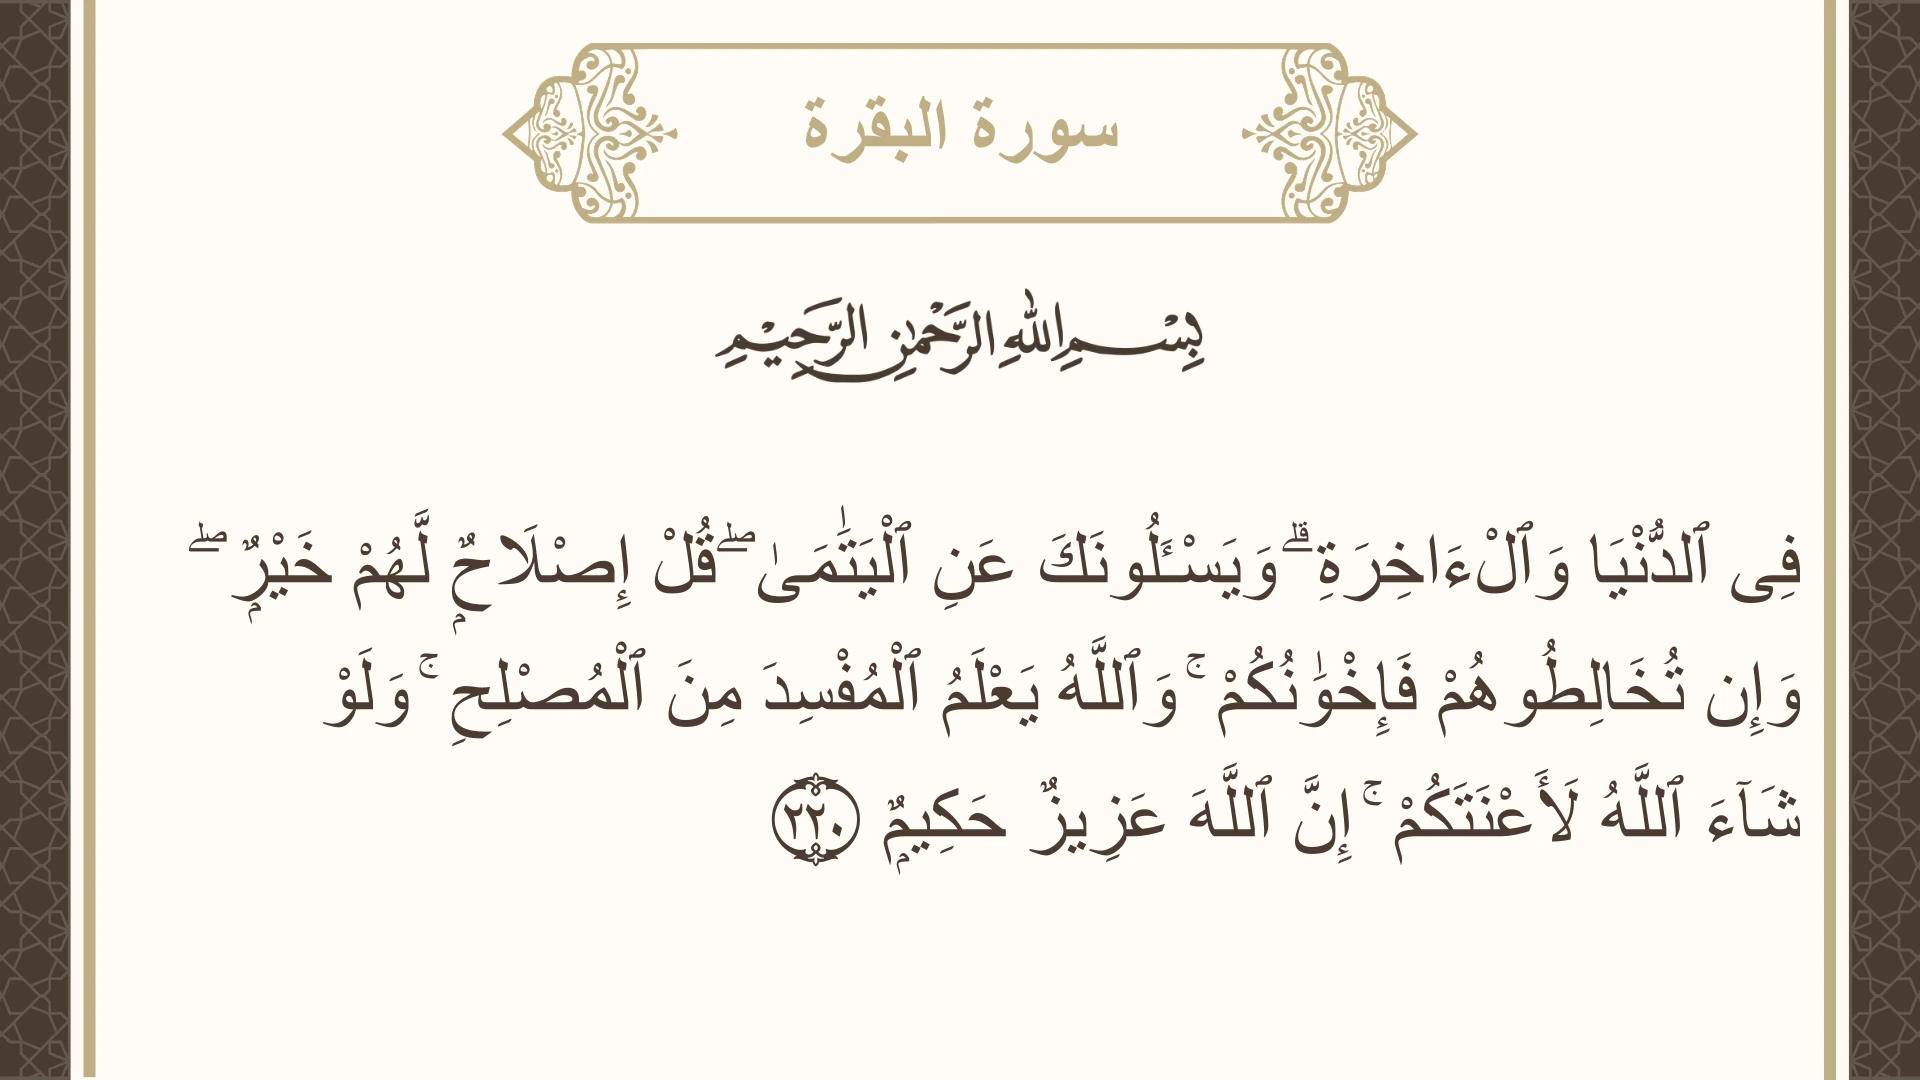 سورة البقرة
بِسْمِ اللهِ الرَّحْمٰنِ الرَّحِيْمِ
فِى ٱلدُّنْيَا وَٱلْءَاخِرَةِ ۗ وَيَسْـَٔلُونَكَ عَنِ ٱلْيَتَٰمَىٰ ۖ قُلْ إِصْلَاحٌۭ لَّهُمْ خَيْرٌۭ ۖ
وَإِن تُخَالِطُوهُمْ فَإِخْوَٰنُكُمْ ۚ وَٱللَّهُ يَعْلَمُ ٱلْمُفْسِدَ مِنَ ٱلْمُصْلِحِ ۚ وَلَوْ
شَآءَ ٱللَّهُ لَأَعْنَتَكُمْ ۚ إِنَّ ٱللَّهَ عَزِيزٌ حَكِيمٌۭ ٢٢٠